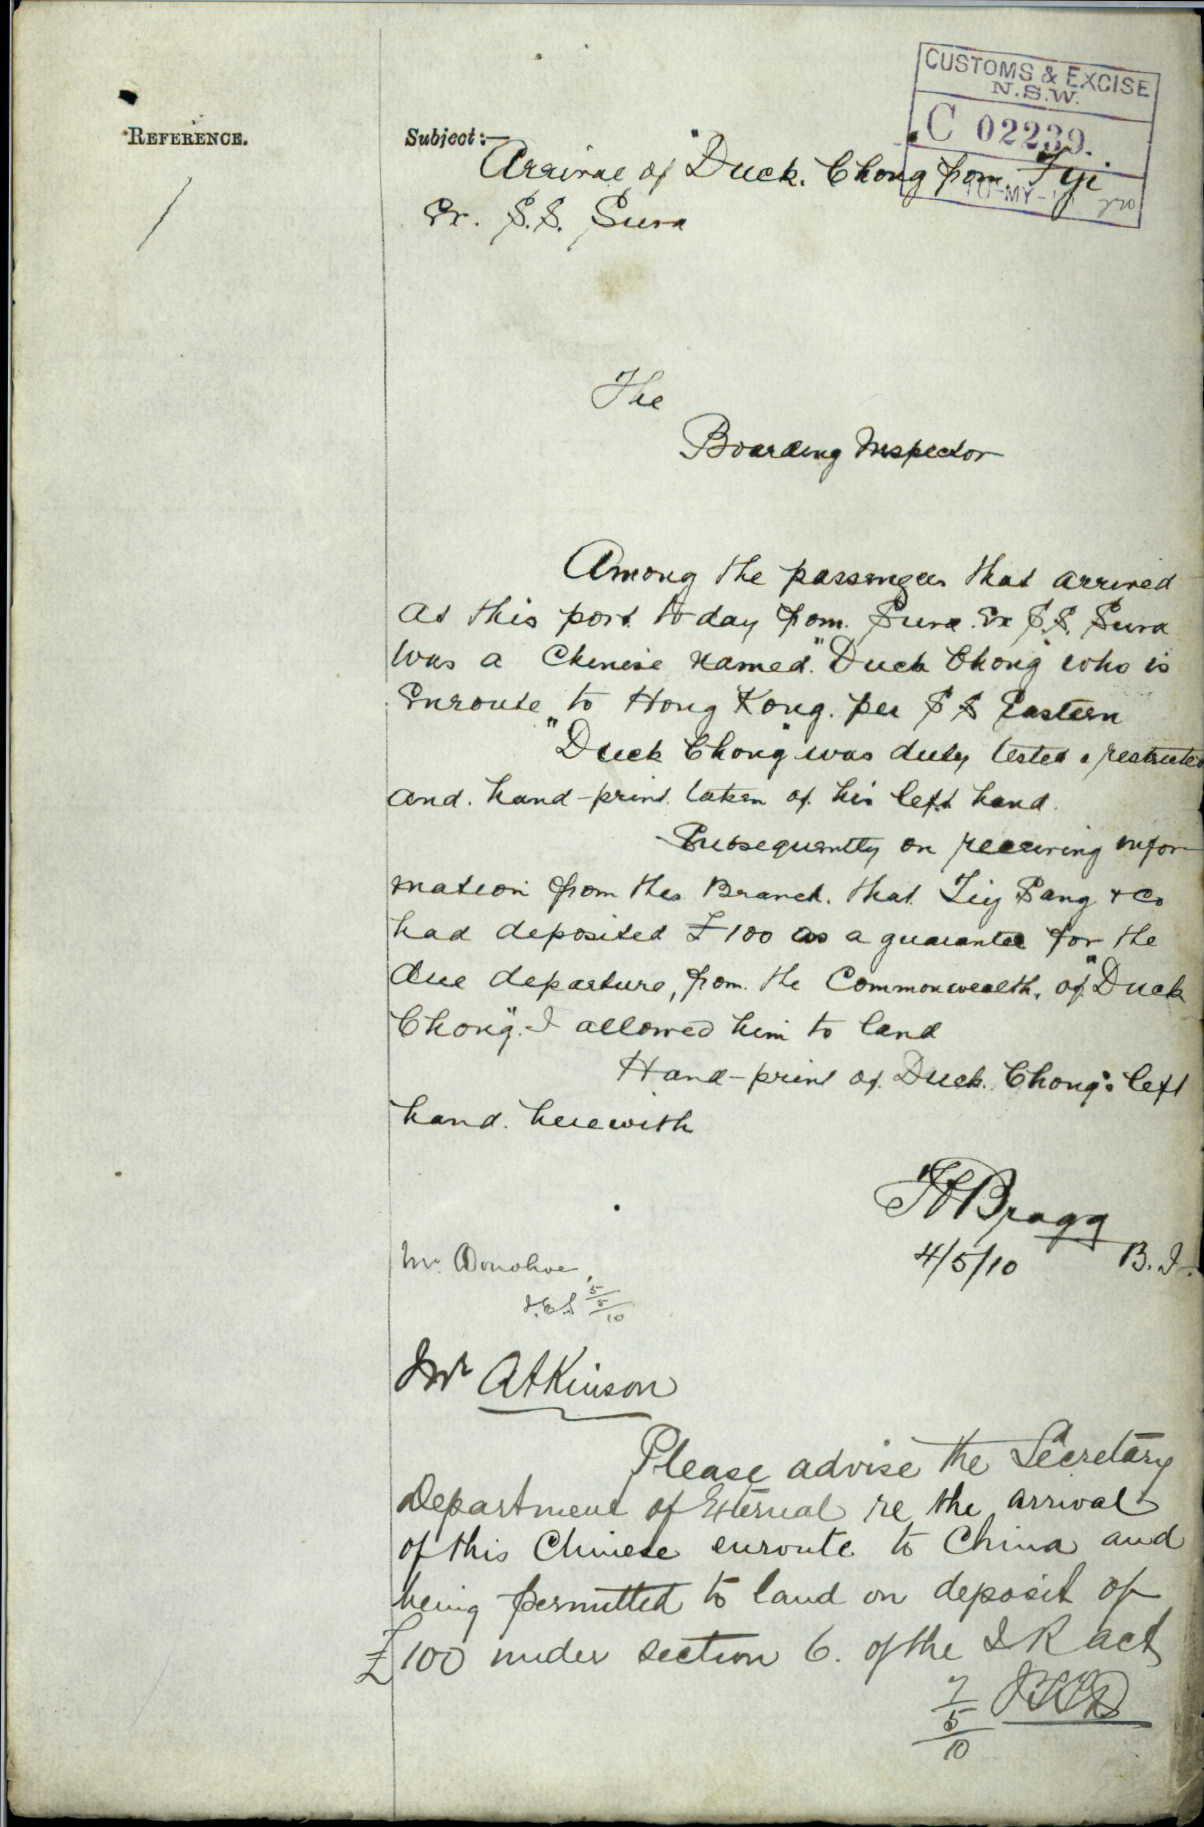 CUSTOMS & EXCISE
N.S.W.
C 02239.
10-MY-10
REFERENCE.
Subject:—
Arrival of "Duck. Chong from Fiji
Ex. S.S. Suva
The
Boarding Inspector
Among the passengers that arrived
at this port to day from. Suva. Ex S.S. Suva
was a Chinese named "Duck Chong" who is
enroute to Hong Kong. per S S Eastern
"Duck Chong" was duly tested & restricted
and. hand-print taken of his left hand.
Subsequently on receiving infor-
mation from this Branch. that Tiy Sang & Co
had deposited £100 as a guarantee for the
due departure, from the Commonwealth, of "Duck
Chong". I allowed him to land
Hand-print of Duck. Chong's left
hand. herewith
Bragg
4/5/10 B.I.
Mr. Donohoe
5/5/10
Mr Atkinson
Please advise the Secretary
Department of External re the arrival
of this Chinese enroute to China and
being permitted to land on deposit of
£100 under section 6. of the I R act
7/5/10